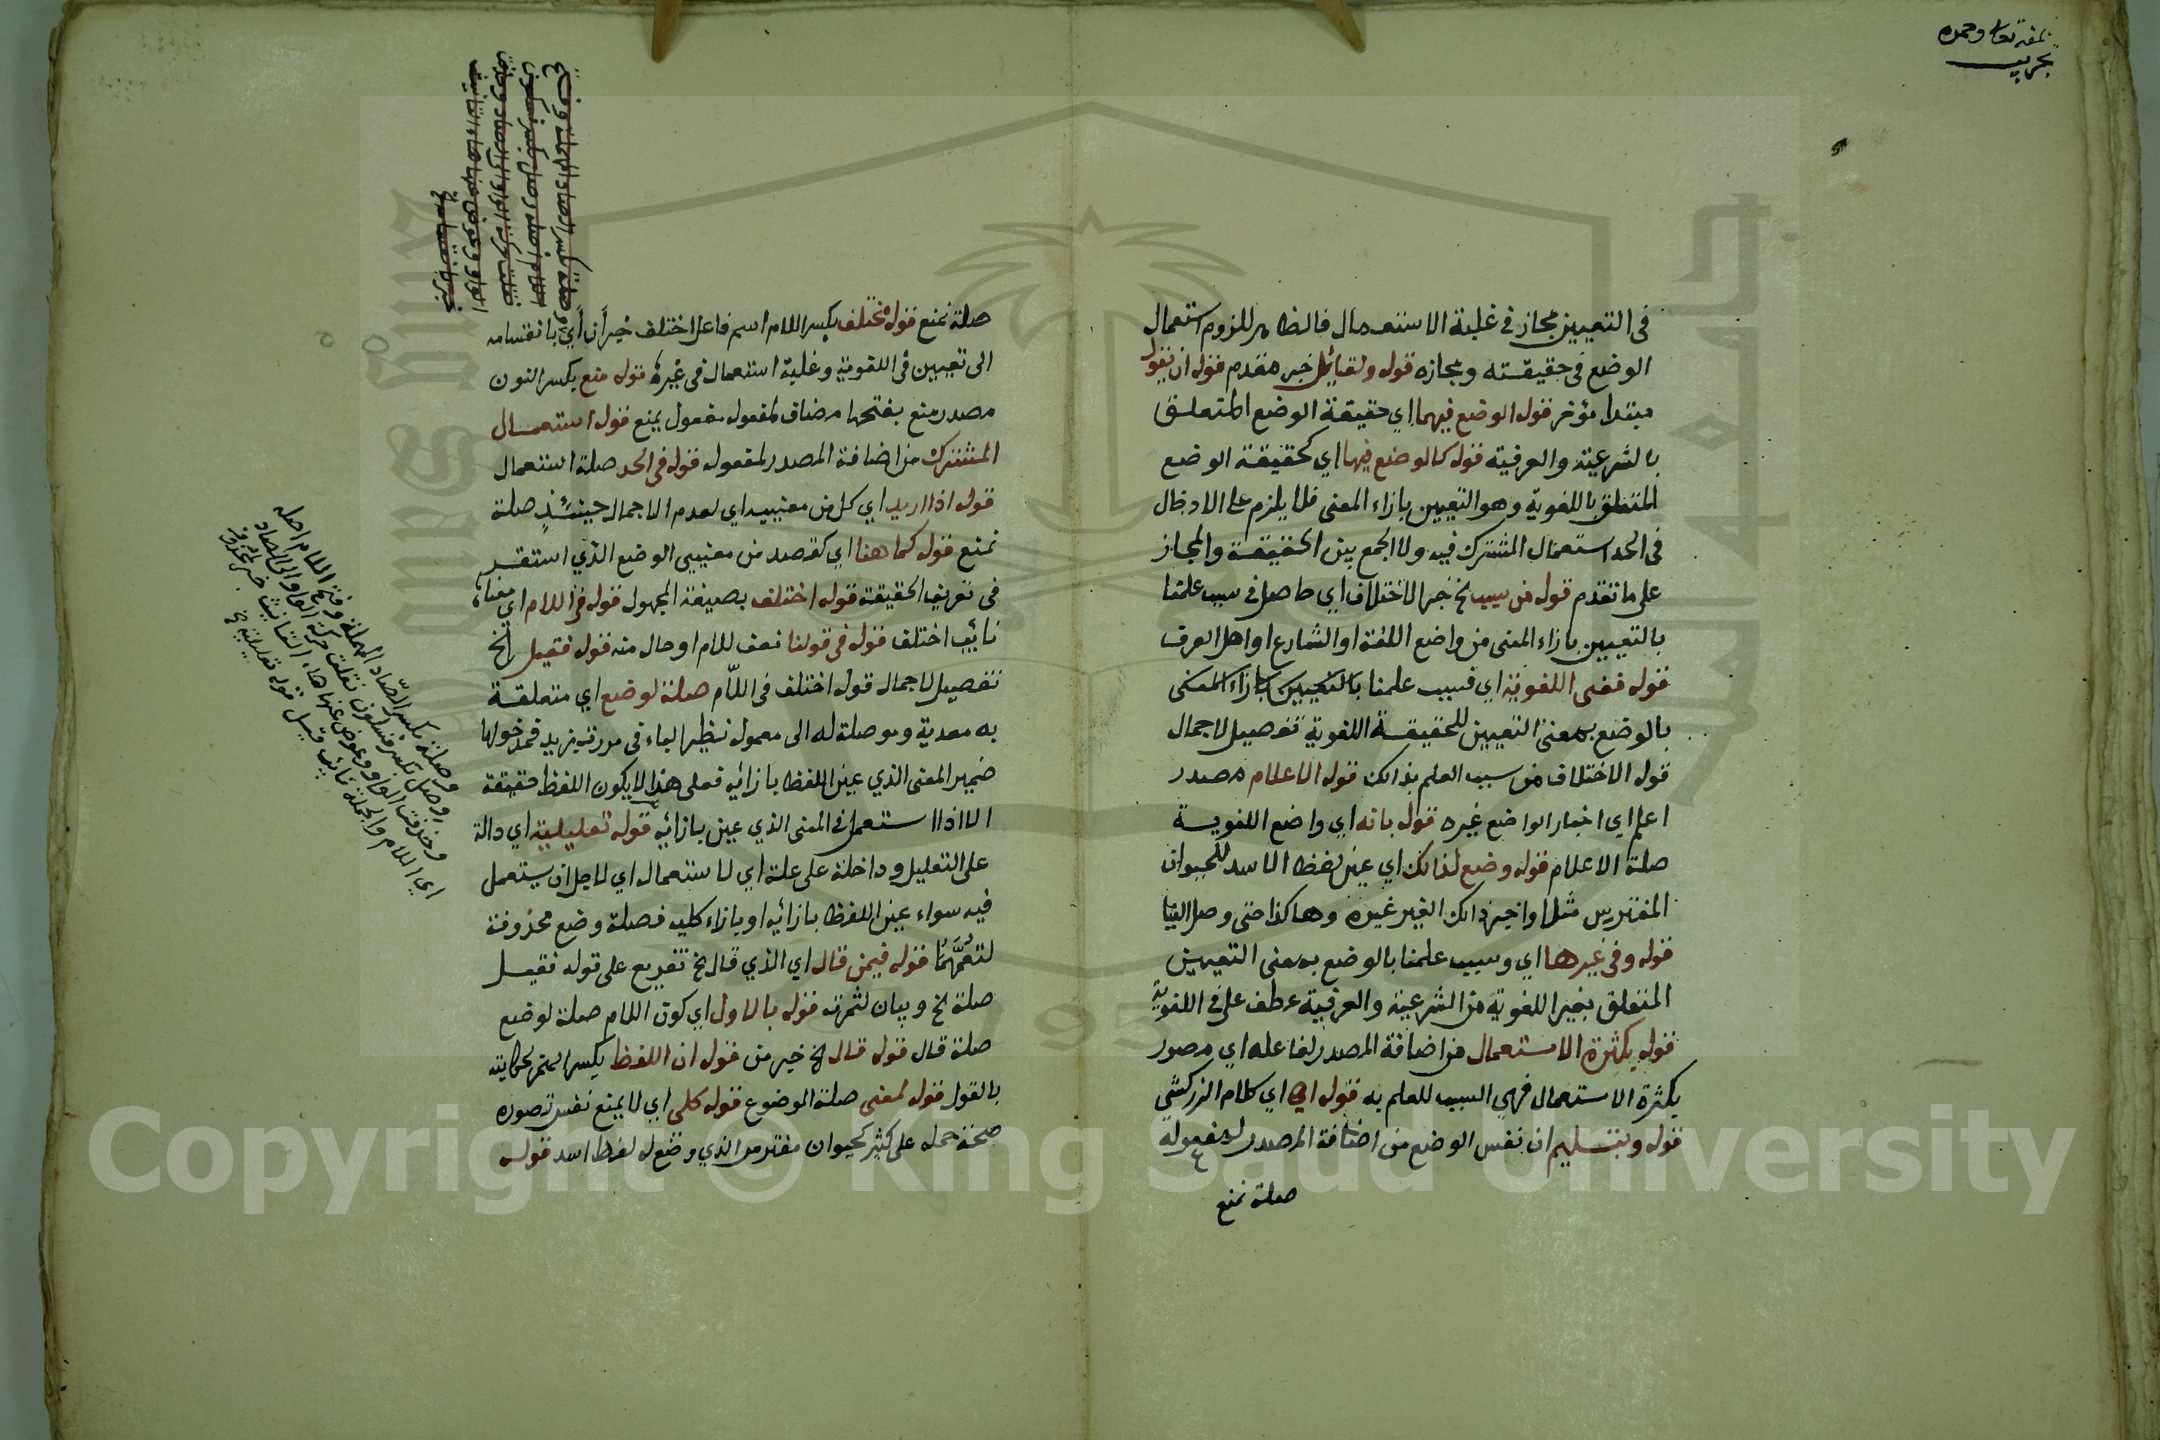 في التعيين مجاز في غلبة الاستعمال فالظاهر للزوم استعمال
الوضع في حقيقته ومجازه قوله ولقايل خبر مقدم قوله ان يقول
مبتدا مؤخر قوله الوضع فيهما اي حقيقة الوضع المتعلق
بالشرعية والعرفية قوله كالوضع فيها اي كحقيقة الوضع
المتعلق باللغوية وهو التعيين بازاء المعنى فلا يلزم على الادخال
في الحد استعمال المشترك فيه ولا الجمع بين الحقيقة والمجاز
على ما تقدم قوله من سبب الخ خبر الاختلاف اي حاصل في سبب علمنا
بالتعيين بازاء المعنى من واضع اللغة او الشارع او اهل العرف
قوله ففي اللغوية اي فسبب علمنا بالتعيين بازاء المعنى
بالوضع بمعنى التعيين للحقيقة اللغوية تفصيل لاجمال
قوله الاختلاف من سبب العلم بذالك قوله الاعلام مصدر
اعلم اي اخبار الواضع غيره قوله بانه اي واضع اللغوية
صلة الاعلام قوله وضع لذالك اي عين لفظ الاسد للحيوان
المفترس مثلا واخبر ذالك الغير غيره وهاكذا حتى وصل الينا
قوله وفي غيرها اي وسبب علمنا بالوضع بمعنى التعيين
المتعلق بغير اللغوية من الشرعية والعرفية عطف على في اللغوية
قوله بكثرة الاستعمال من اضافة المصدر لفاعله اي مصور
بكثرة الاستعمال فهي السبب للعلم به قوله اهـ اي كلام الزركشي
قوله وبتسليم ان نفس الوضع من اضافة المصدر لمفعوله
صلة نمنع
صلة نمنع قوله مختلف بكسر اللام اسم فاعل اختلف خبر أن أي بانقسامه
الى تعيين في اللغوية وغلبة استعمال في غيرها قوله منع بكسر النون
مصدر منع بفتحها مضاف لمفعوله مفعول يمنع قوله استعمال
المشترك من اضافة المصدر لمفعوله قوله في الحد صلة استعمال
قوله اذا اريد اي كل من معنييه اي لعدم الاجمال حينئذ صلة
نمنع قوله كما هنا اي كقصد من معنيي الوضع الذي استقر
في تعريف الحقيقة قوله اختلف بصيغة المجهول قوله في اللام اي معناه
نائب اختلف قوله في قولنا نعت للام او حال منه قوله فقيل الخ
تفصيل لاجمال قوله اختلف في اللام صلة لوضع اي متعلقة
به معدية وموصلة له الى معموله نظير الباء في مررت بزيد فمدخولها
ضمير المعنى الذي عين اللفظ بازائه فعلى هذا لا يكون اللفظ حقيقة
الا اذا استعمل في المعنى الذي عين بازائه قوله تعليلية اي دالة
على التعليل وداخلة على علة اي لاستعمال اي لاجل ان يستعمل
فيه سواء عين اللفظ بازائه او بازاء كليه فصلة وضع محذوفة
لتعمهما قوله فيمن قال اي الذي قال الخ تفريع على قوله فقيل
صلة الخ وبيان لثمرته قوله بالاول اي كون اللام صلة لوضع
صلة قال قوله قال الخ خبر من قوله ان اللفظ بكسر الهمز لحكايته
بالقول قوله لمعنى صلة الموضوع قوله كلي اي لا يمنع نفس تصوره
صحة حمله على كثير كحيوان مفترس الذي وضع له لفظ اسد قوله
وصلة بكسر الصاد المهملة وفتح اللام اصله
وصل بكسر فسكون نقلت حركة الواو الى الصاد
وحذفت الواو وعوض عنها هاء التانيث خبر محذوف
اي اللام والجملة نايب قيل قوله تعليلية
Copyright © King Saud University